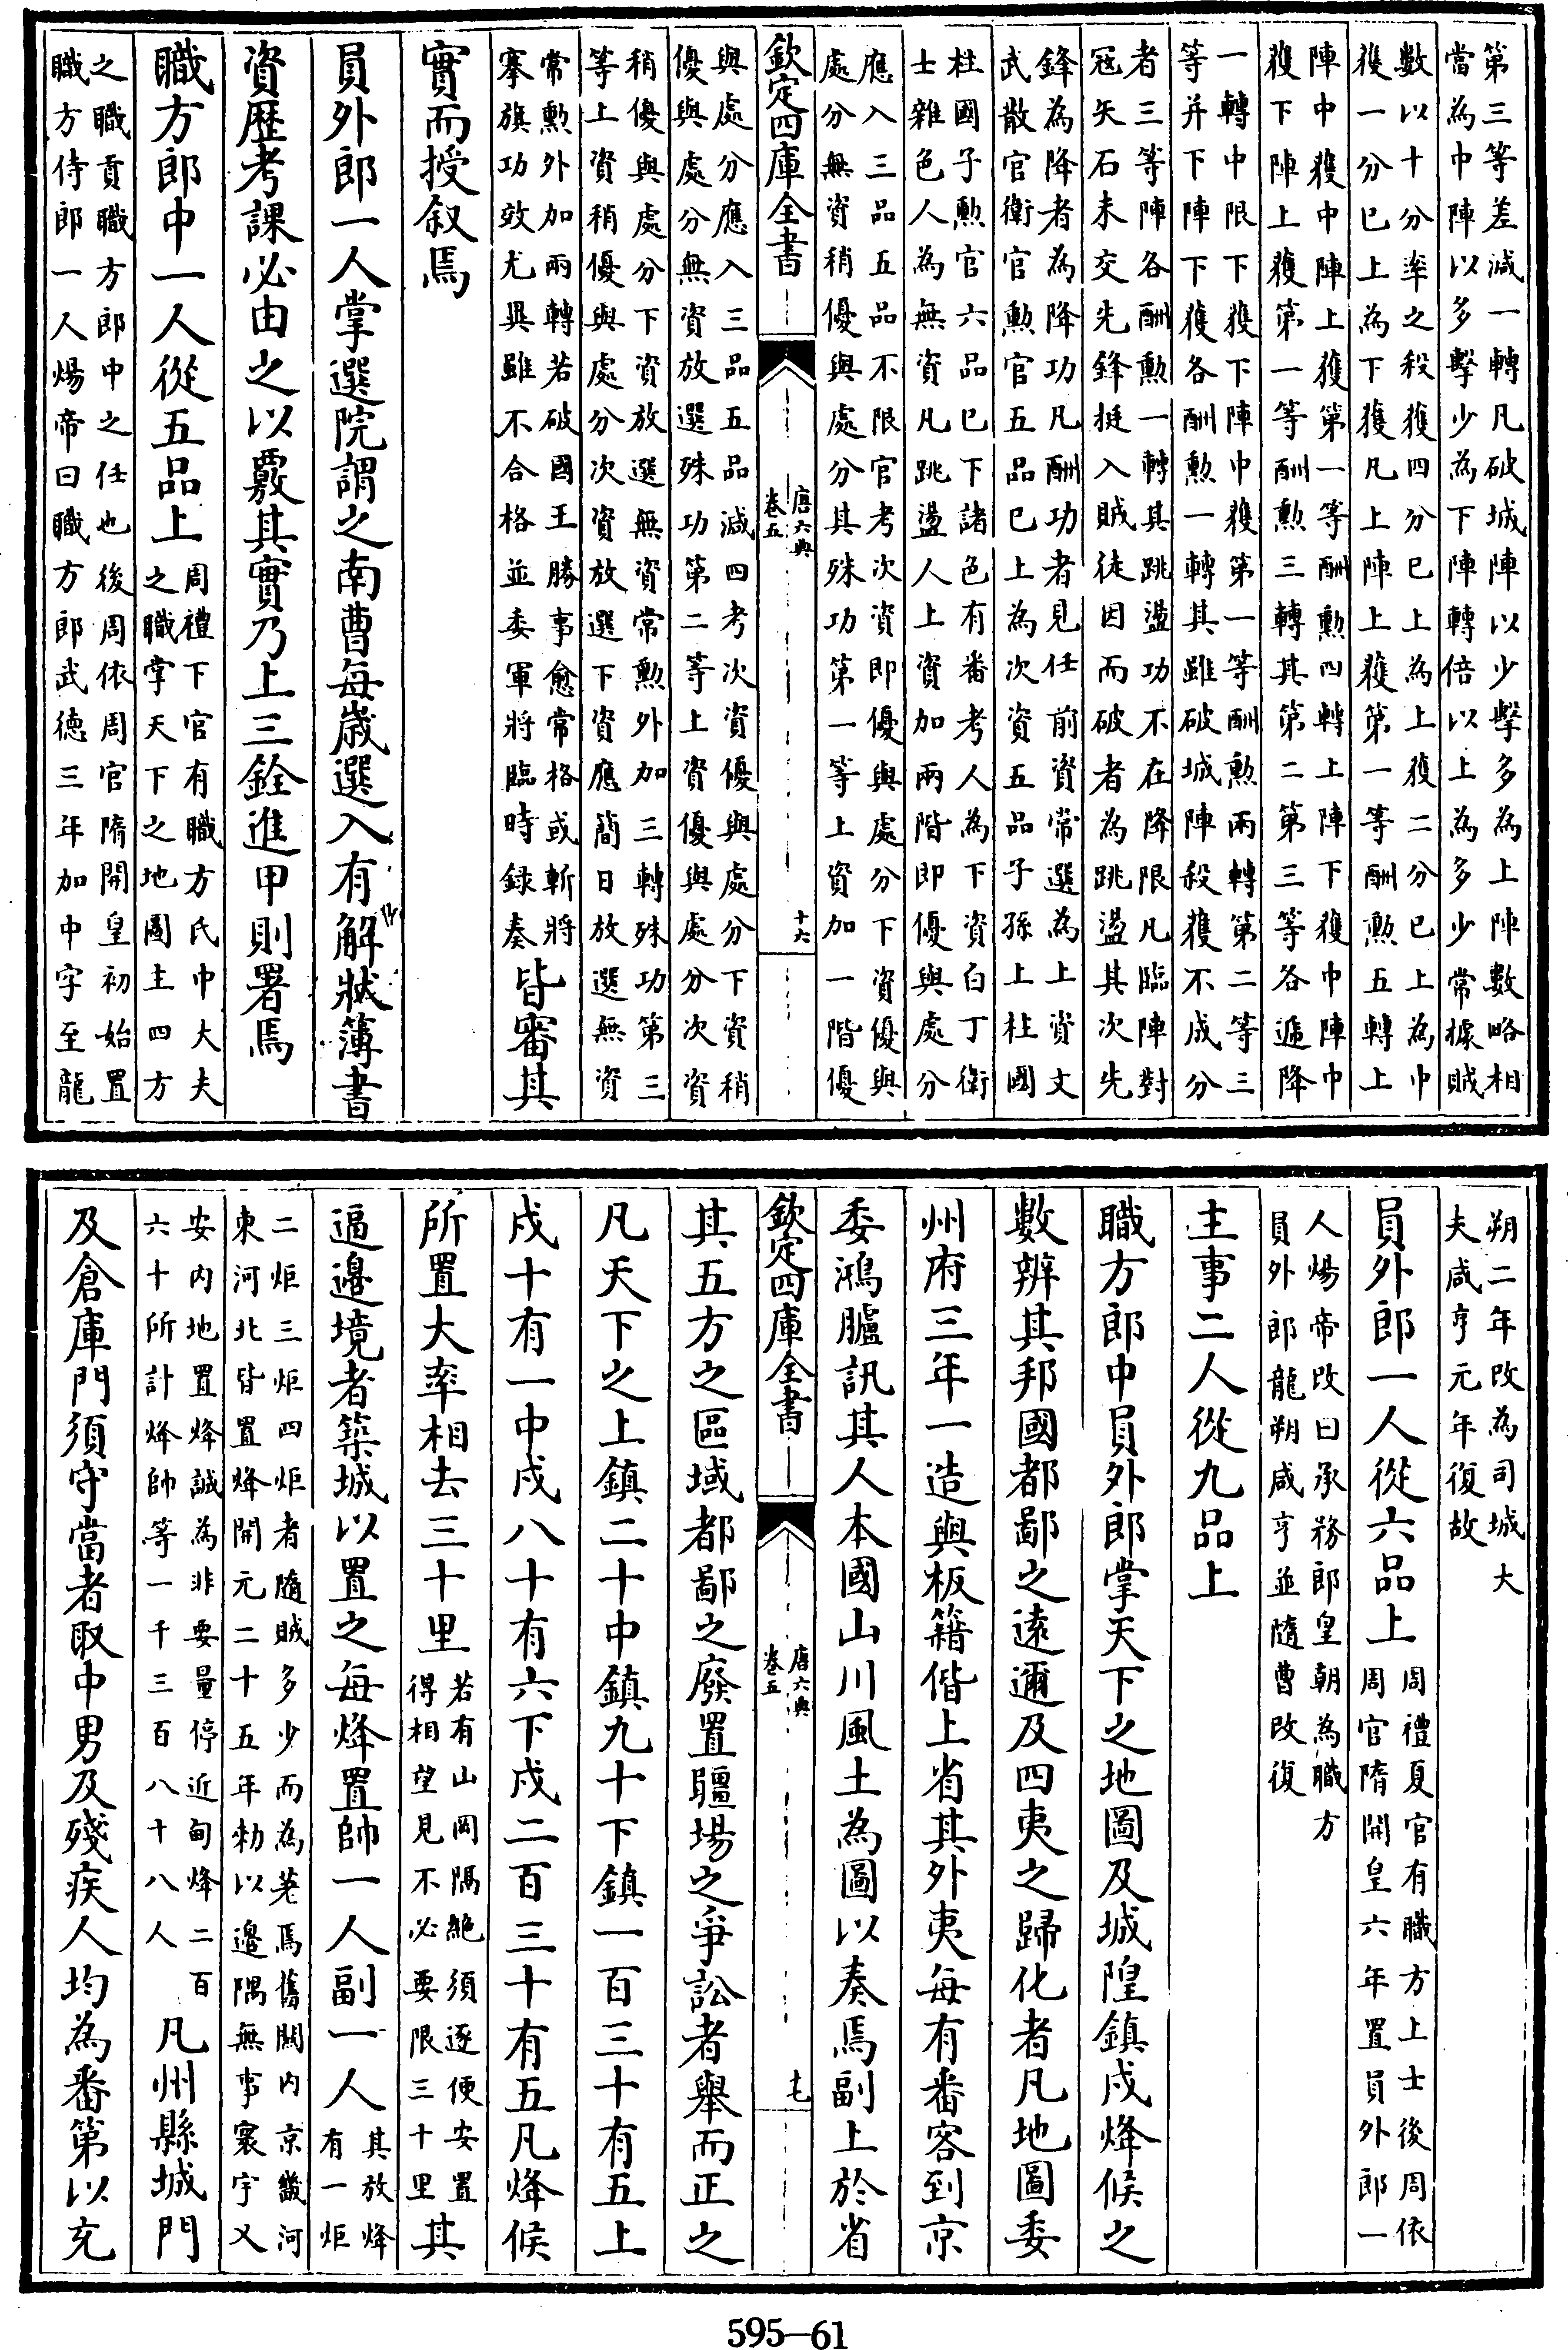 第三等差減一轉凡破城陣以少擊多為上陣數略相
當為中陣以多擊少為下陣轉倍以上為多少常據賊
數以十分率之殺獲四分已上為上獲二分已上為中
獲一分已上為下獲凡上陣上獲第一等酬勲五轉上
陣中獲中陣上獲第一等酬勲四轉上陣下獲中陣中
獲下陣上獲第一等酬勲三轉其第二第三等各遞降
一轉中限下獲下陣中獲第一等酬勲兩轉第二等三
等并下陣下獲各酬勲一轉其雖破城陣殺獲不成分
者三等陣各酬勲一轉其跳盪功不在降限凡臨陣對
冦矢石未交先鋒挺入賊徒因而破者為跳盪其次先
鋒為降者為降功凡酬功者見任前資常選為上資文
武散官衛官勲官五品已上為次資五品子孫上柱國
柱國子勲官六品已下諸色有番考人為下資白丁衛
士雜色人為無資凡跳盪人上資加兩階即優與處分
應入三品五品不限官考次資即優與處分下資優與
處分無資稍優與處分其殊功第一等上資加一階優
欽定四庫全書
唐六典
卷五
十六
與處分應入三品五品減四考次資優與處分下資稍
優與處分無資放選殊功第二等上資優與處分次資
稍優與處分下資放選無資常勲外加三轉殊功第三
等上資稍優與處分次資放選下資應簡日放選無資
常勲外加兩轉若破國王勝事愈常格或斬將
搴旗功效尤異雖不合格並委軍將臨時録奏
皆審其
實而授叙焉
員外郎一人掌選院謂之南曹每歲選入有解狀簿書
資歴考課必由之以覈其實乃上三銓進甲則署焉
職方郎中一人從五品上
周禮下官有職方氏中大夫
之職掌天下之地圖主四方
之職貢職方郎中之任也後周依周官隋開皇初始置
職方侍郎一人煬帝曰職方郎武徳三年加中字至龍
朔二年改為司城大
夫咸亨元年復故
員外郎一人從六品上
周禮夏官有職方上士後周依
周官隋開皇六年置員外郎一
人煬帝改曰承務郎皇朝為職方
員外郎龍朔咸亨並隨曹改復
主事二人從九品上
職方郎中員外郎掌天下之地圖及城隍鎮戍烽候之
數辨其邦國都鄙之逺邇及四夷之歸化者凡地圖委
州府三年一造與板籍偕上省其外夷每有番客到京
委鴻臚訊其人本國山川風土為圖以奏焉副上於省
欽定四庫全書
唐六典
卷五
十七
其五方之區域都鄙之廢置疆埸之爭訟者舉而正之
凡天下之上鎮二十中鎮九十下鎮一百三十有五上
戍十有一中戍八十有六下戍二百三十有五凡烽候
所置大率相去三十里
若有山岡隅絶須逐便安置
得相望見不必要限三十里
其
逼邊境者築城以置之每烽置帥一人副一人
其放烽
有一炬
二炬三炬四炬者隨賊多少而為差焉舊關内京畿河
東河北皆置烽開元二十五年勅以邊隅無事寰宇乂
安内地置烽誠為非要量停近甸烽二百
六十所計烽帥等一千三百八十八人
凡州縣城門
及倉庫門須守當者取中男及殘疾人均為番第以充
595-61